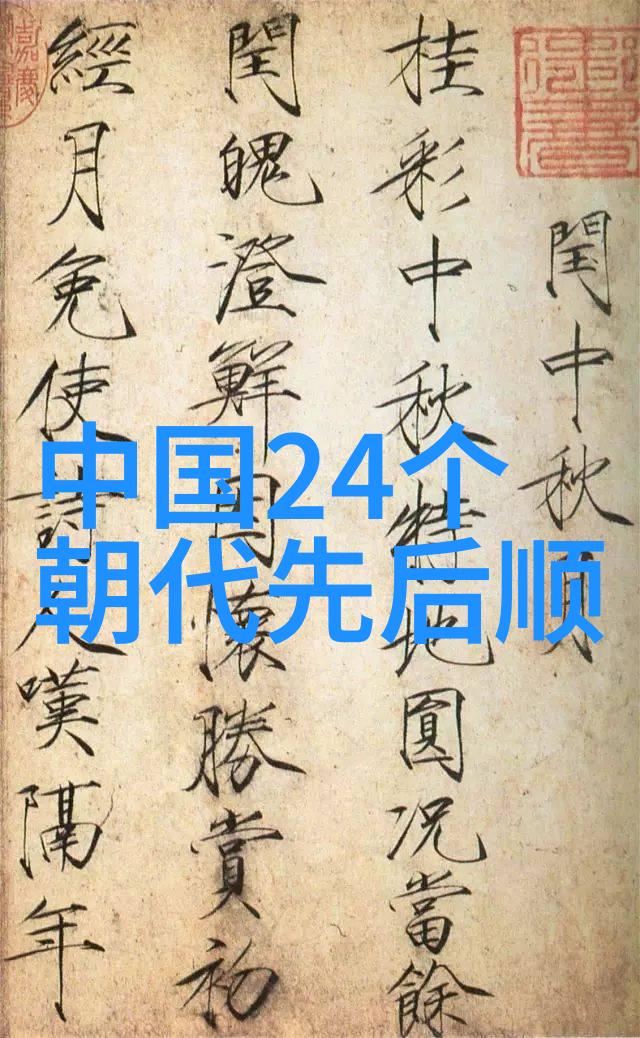 閏中秋月
桂彩中秋特地圓況當餘
閏魄澄鮮因懷勝賞初
經月免使詩人嘆隔年
嘉慶
中国24个
朝代先后顺